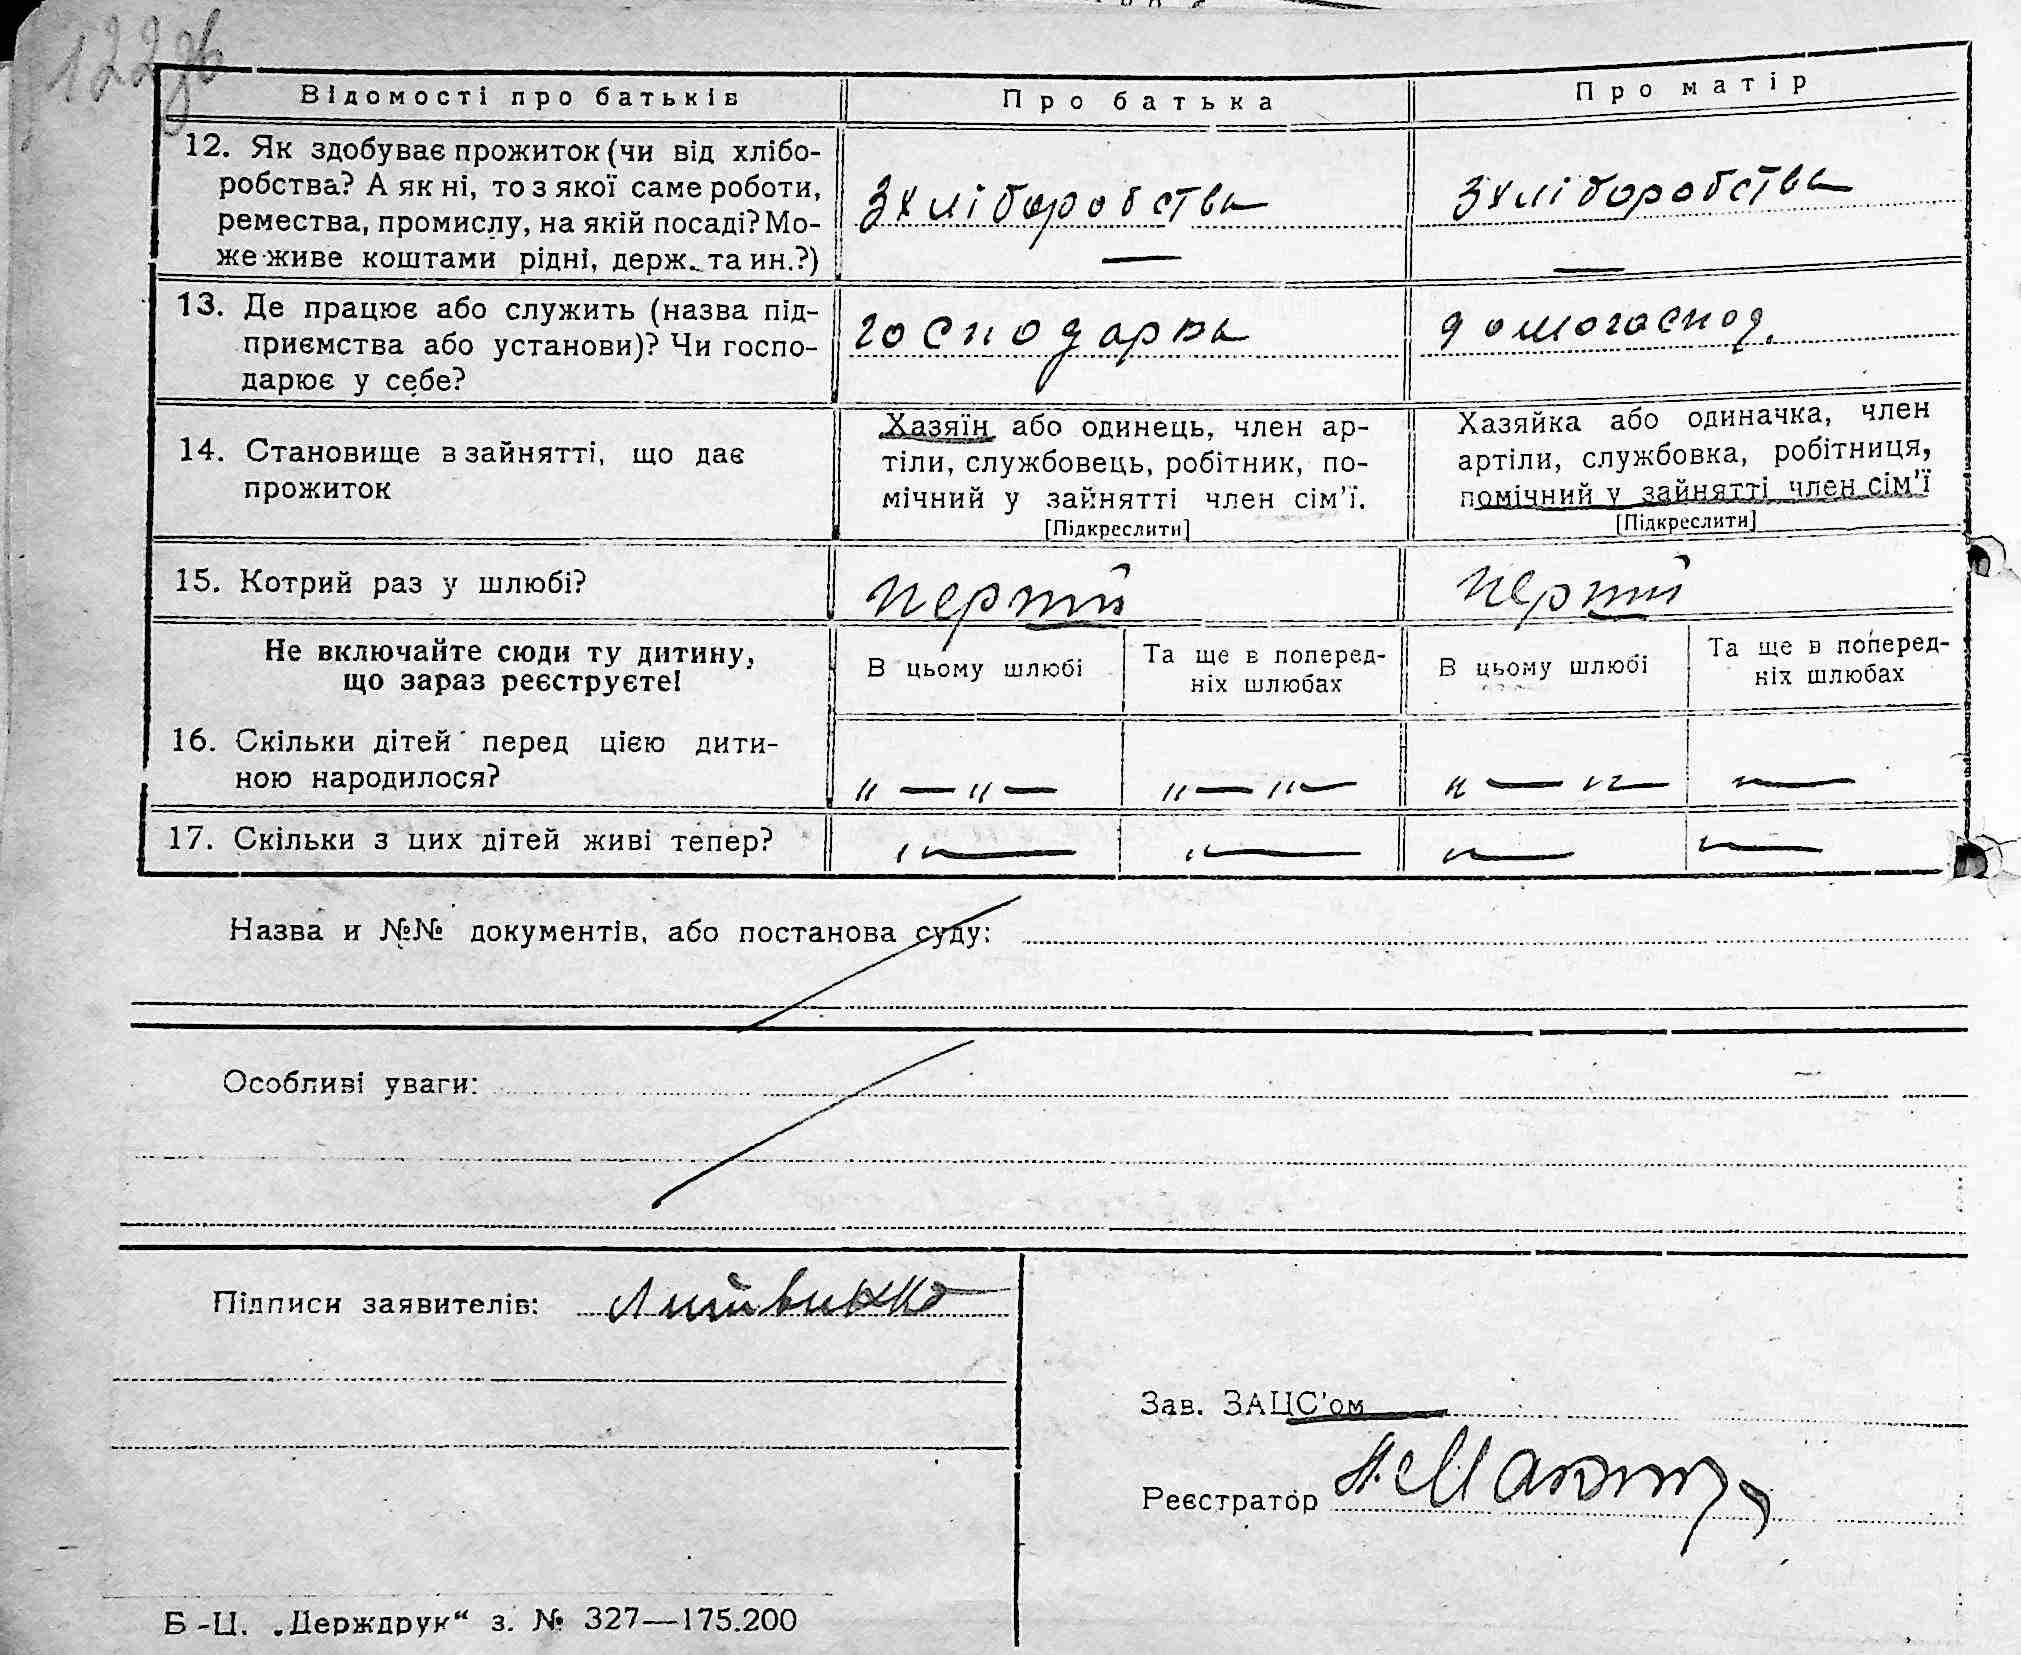 122зв
Відомості про батьків
Про батька
Про матір
12. Як здобуває прожиток (чи від хлібо-
робства? А як ні, то з якої саме роботи,
ремества, промислу, на якій посаді? Мо-
же живе коштами рідні, держ. та ин.?)
З хліборобства
З хліборобства
13. Де працює або служить (назва під-
приємства або установи)? Чи госпо-
дарює у себе?
господарка
домогоспод.
14. Становище в зайнятті, що дає
прожиток
Хазяїн або одинець, член ар-
тіли, службовець, робітник, по-
мічний у зайнятті член сім'ї.
[Підкреслити]
Хазяйка або одиначка, член
артіли, службовка, робітниця,
помічний у зайнятті член сім'ї
[Підкреслити]
15. Котрий раз у шлюбі?
перший
перший
Не включайте сюди ту дитину,
що зараз реєструєте!
В цьому шлюбі
Та ще в поперед-
ніх шлюбах
В цьому шлюбі
Та ще в поперед-
ніх шлюбах
16. Скільки дітей перед цією дити-
ною народилося?
"—"—
"—"—
"—"—
"—
17. Скільки з цих дітей живі тепер?
"—
"—
"—
"—
Назва и №№ документів, або постанова суду:
Особливі уваги:
Підписи заявителів: Литвинко
Зав. ЗАЦС'ом
Реєстратор
Б-Ц. „Держдрук“ з. № 327—175.200